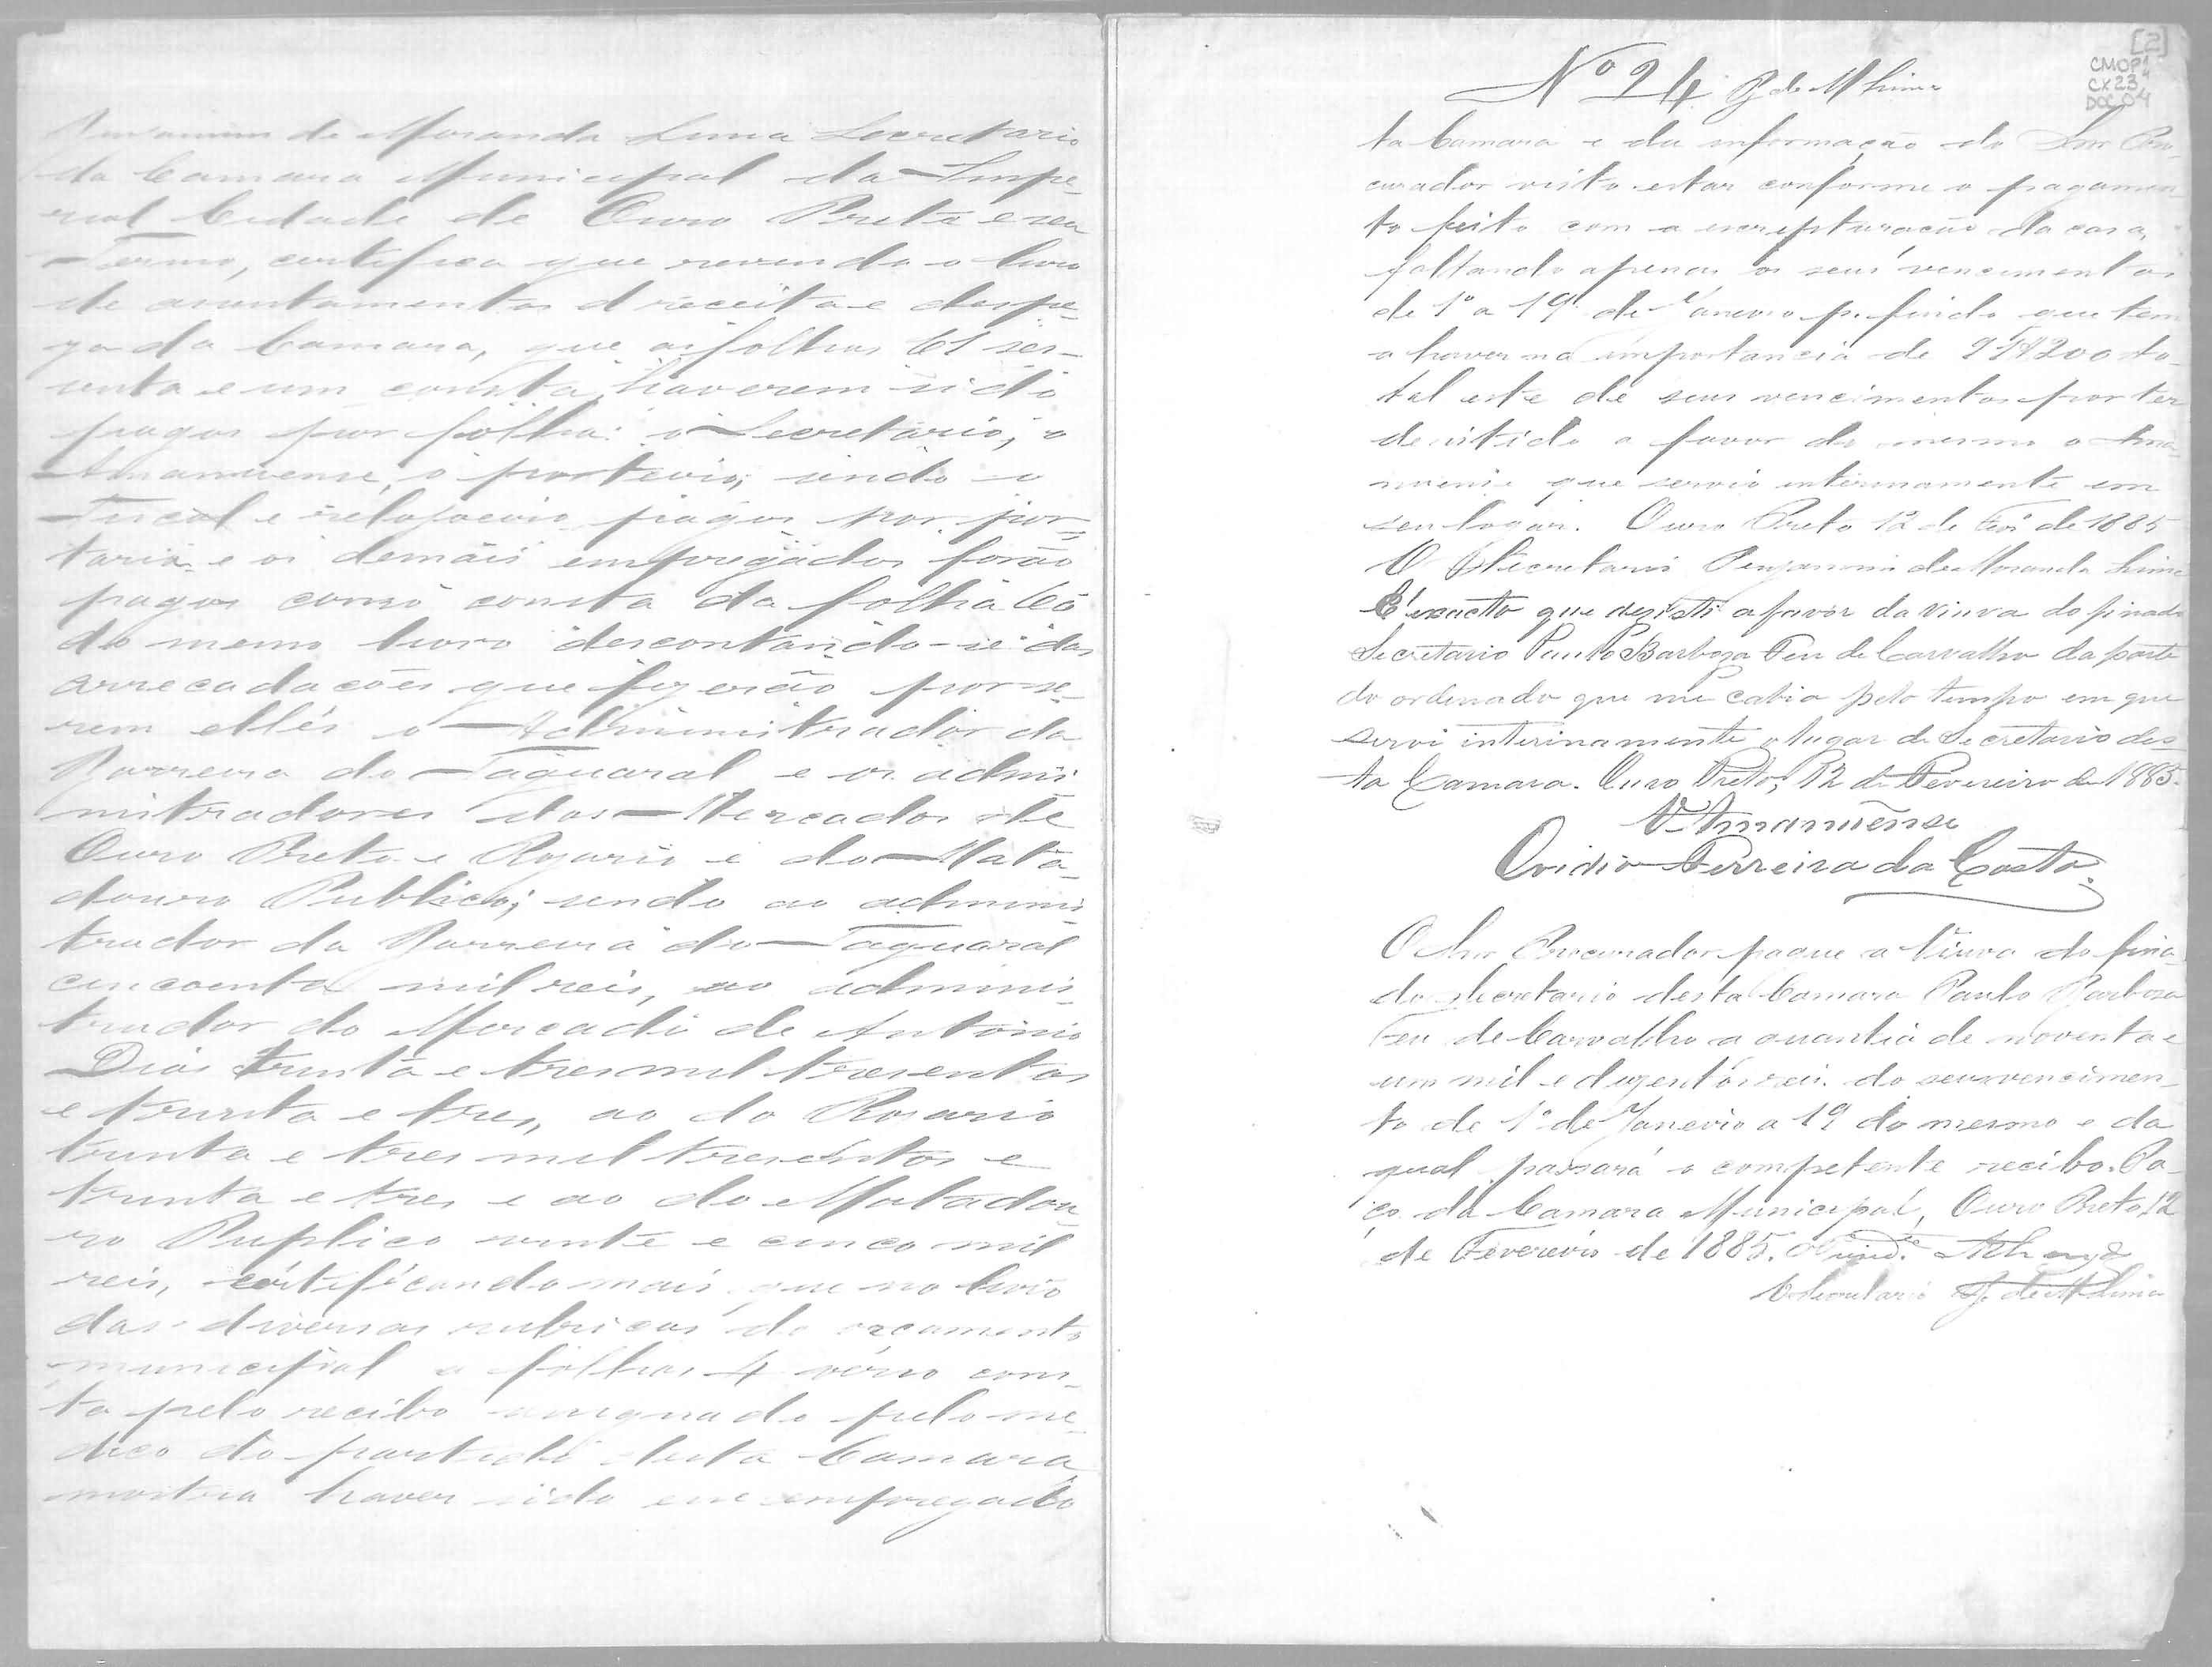 Benjamim de Miranda Lima Secretario
da Camara Municipal da Impe-
rial Cidade de Ouro Preto e seu
Termo, certifica que revendo o livro
de assentamentos d receita e despe-
za da Camara, que as folhas 61 ses-
senta e um consta, haverem sido
pagos por folha: o Secretario, o
Amanuense, o porteiro, sendo o
Fiscal e pagos por por-
taria e os demais empregados forão
pagos como consta da folha 60
do mesmo livro descontando-se das
arrecadacões que fizerão por se-
rem elles o Administrador da
Barreira do Taquaral e os admi-
nistradores dos Mercados de
Ouro Preto e Rosario e do Mata-
douro Publico; sendo ao adminis-
trador da Barreira do Taquaral
cincoenta mil reis, ao adminis-
trador do Mercado de Antonio
Dias trinta e tres mil tresentos
e trinta e tres, ao do Rosario
trinta e tres mil tresentos e
trinta e tres e ao do Matadou-
ro Puplico vinte e cinco mil
reis, certificando mais que no livro
das diversas rubricas do orçamento
municipal a folhas 4 verso cons-
ta pelo recibo assignado pelo me-
dico do partido desta Camara
mostra haver sido esse empregado
[2]
CMOP
CX 23
DOC 04
Nº 24 B de M Lima
ta Camara e da informação do Snr Pro-
curador visto estar conforme o pagamen-
to feito com a escripturacão da casa,
faltando apenas os seus vencimentos
de 1º a 19 de Janeiro p. findo que tem
a haver na importancia de 91$200 to-
tal este de seus vencimentos por ter
desistido a favor do mesmo o Ama-
nuense que servio interinamente em
seu logar. Ouro Preto 12 de Fevº de 1885
O Secretario Benjamim de Miranda Lima
E' exacto que desisti a favor da viuva do finado
Secretario Paulo Barboza Feu de Carvalho da parte
do ordenado que me cabia pelo tempo em que
servi interinamente o lugar de Secretario des-
ta Camara. Ouro Preto, 12 de Fevereiro de 1885.
O Amanuense
Ovidio Ferreira da Costa.
O Snr Procurador pague a Viuva do fina-
do Secretario desta Camara Paulo Barbosa
Feu de Carvalho a quantia de noventa e
um mil e duzentos reis do seu vencimen-
to de 1º de Janeiro a 19 do mesmo e da
qual passará o competente recibo. Pa-
ço da Camara Municipal, Ouro Preto, 12
de Fevereiro de 1885.
O Secretario B. de M Lima